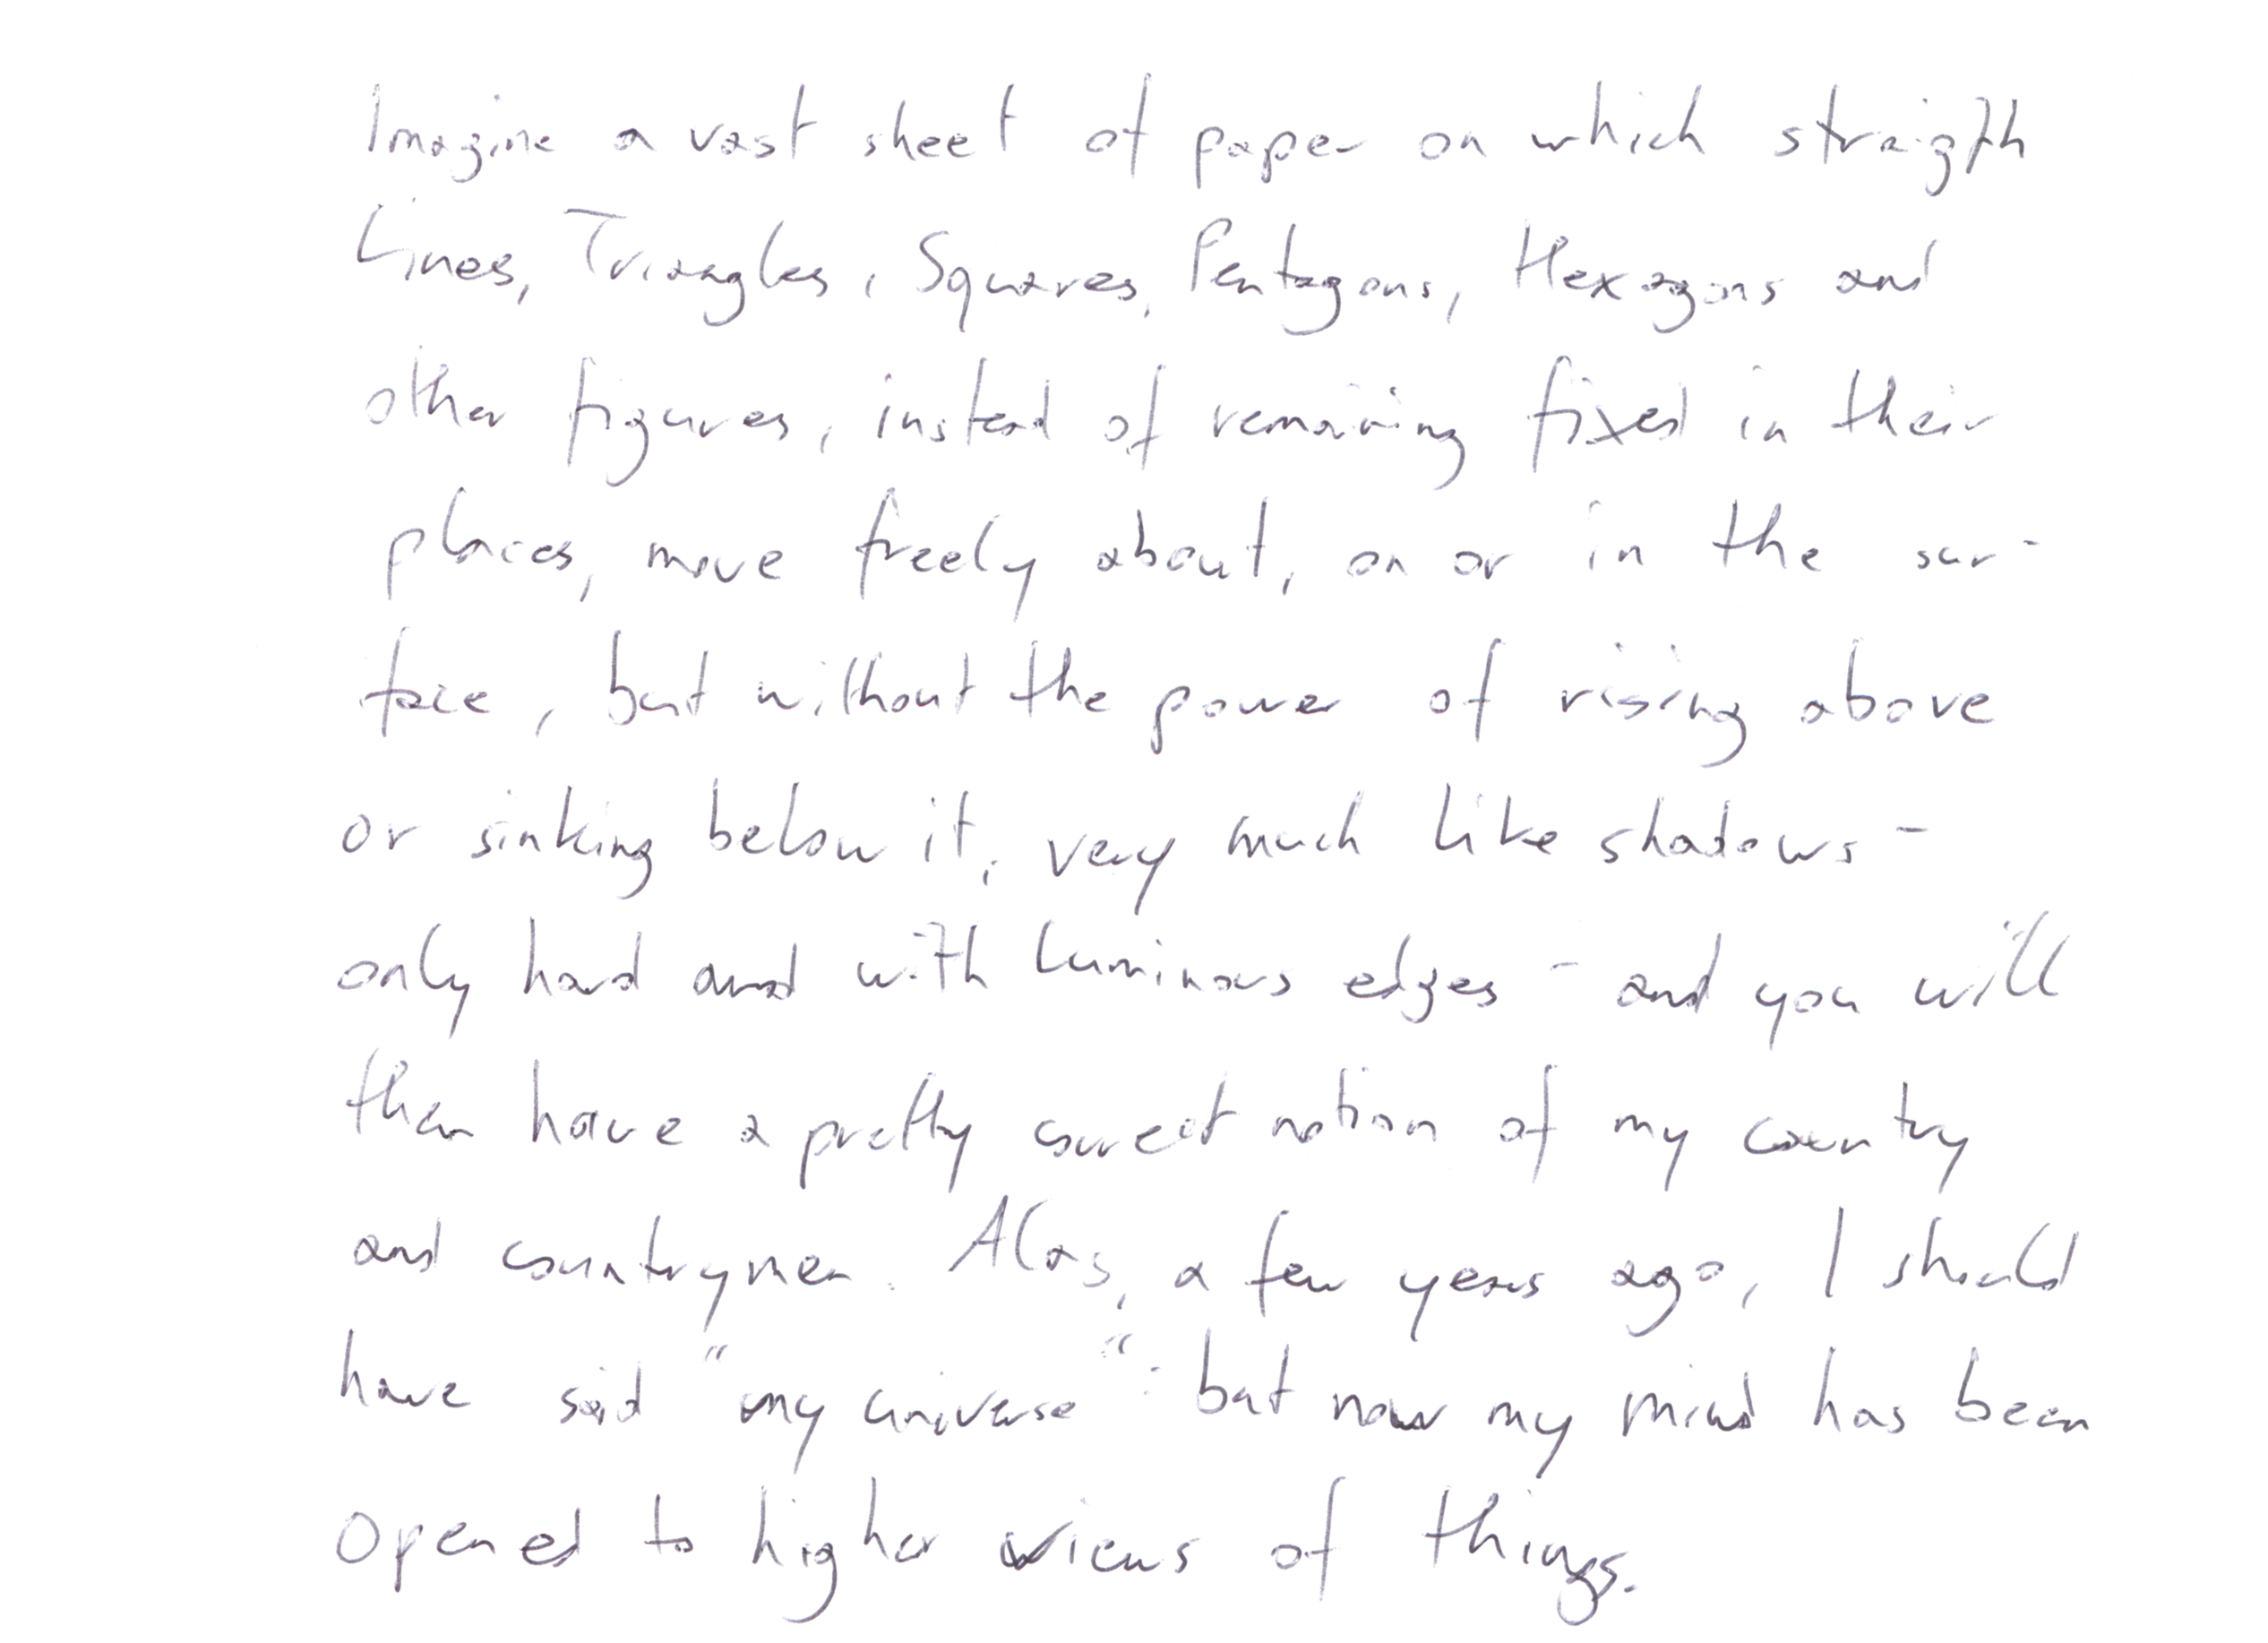 Imagine a vast sheet of paper on which straigth
Lines, Triangles, Squares, Pentagons, Hexagons and
other figures, instead of remaining fixed in their
places, move freely about, on or in the sur-
face, but without the power of rising above
or sinking below it, very much like shadows -
only hard and with luminous edges - and you will
then have a pretty correct notion of my country
and countrymen. Alas, a few years ago, I should
have said "my universe": but now my mind has been
opened to higher views of things.